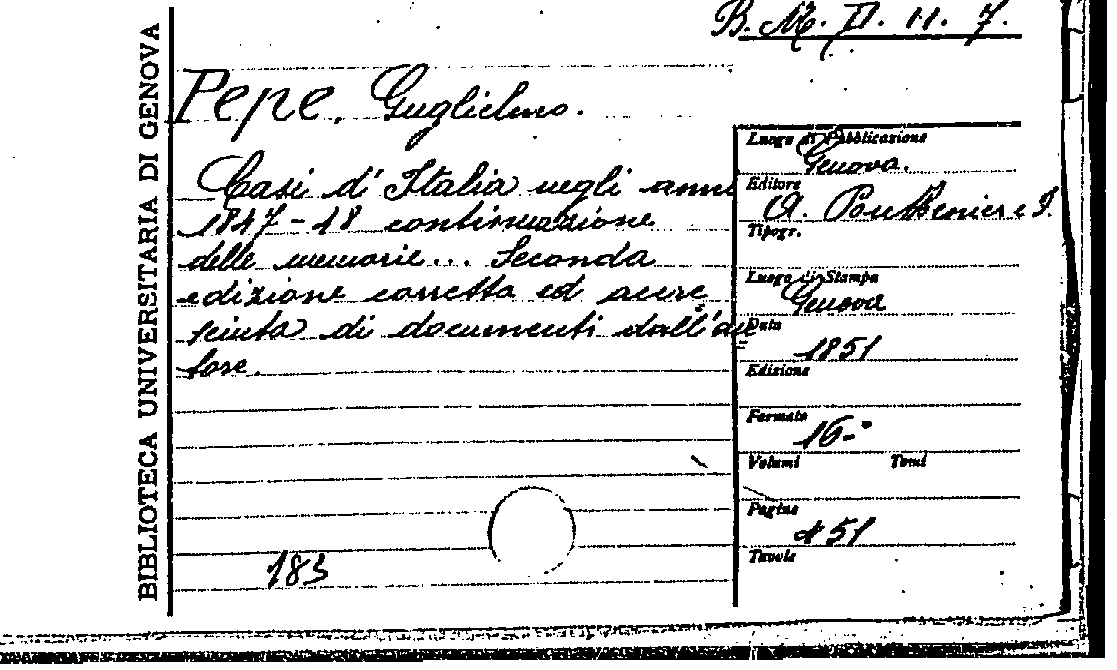 B. M. D. 11. 7.
BIBLIOTECA UNIVERSITARIA DI GENOVA
Pepe, Guglielmo.
Casi d'Italia negli anni
1847-48 continuazione
delle memorie... Seconda
edizione corretta ed accre
sciuta di documenti dall'au=
tore.
183
Luogo di Pubblicazione
Genova.
Editore
A.
Tipogr.
Luogo di Stampa
Genova
Data
1851
Edizione
Formato
16-°
Volumi Tomi
Pagine
451
Tavole